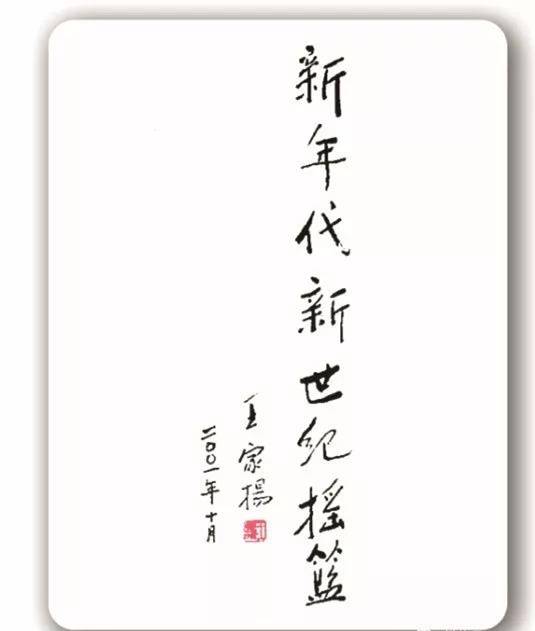 新年代新世纪摇篮
王家揚
二〇〇一年十月